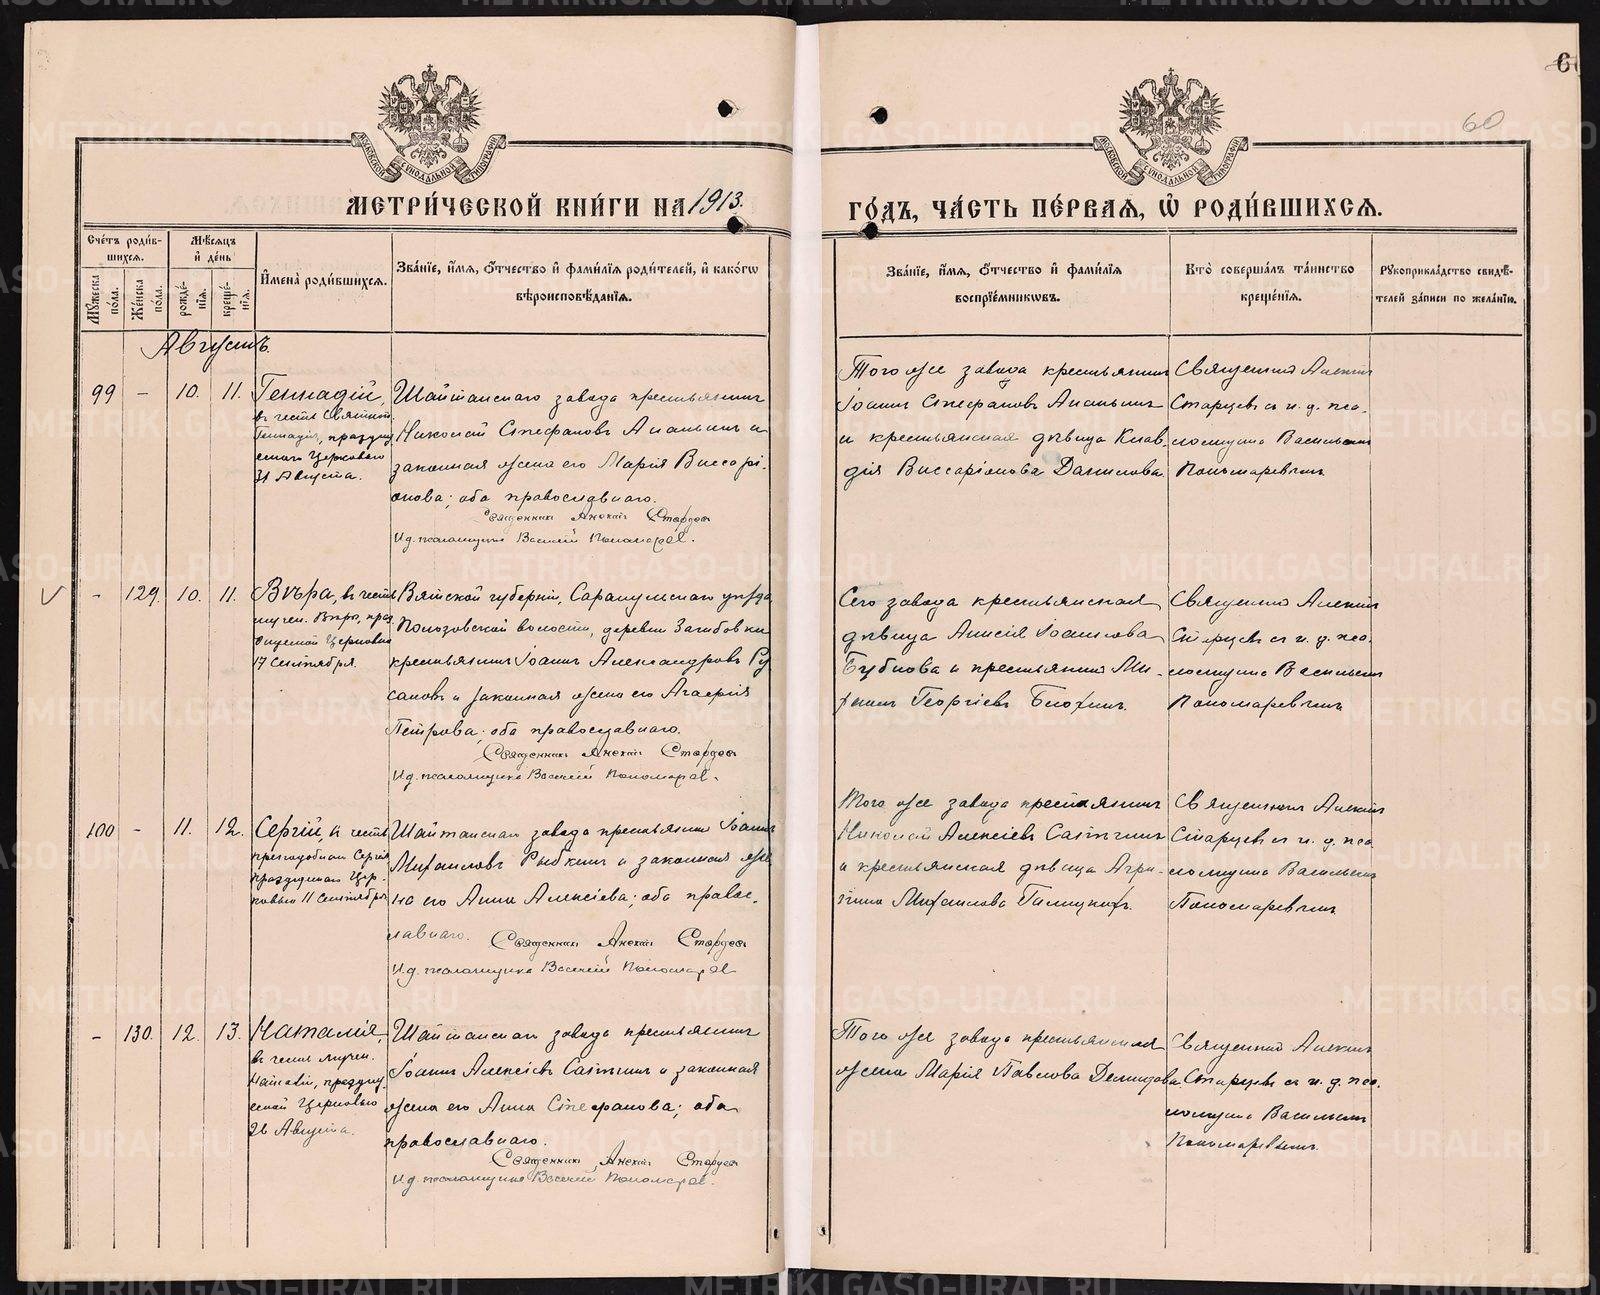 60
МОСКОВСКОЙ СѴНОДАЛЬНОЙ ТИПОГРАФІИ
МОСКОВСКОЙ СѴНОДАЛЬНОЙ ТИПОГРАФІИ
МЕТРИ́ЧЕСКОЙ КНИ́ГИ НА 1913.
ГО́ДЪ, ЧА́СТЬ ПЕ́РВАЯ, Ѡ҆ РОДИ́ВШИХСЯ.
Сче́тъ роди́в-
шихся.
Мѣ́сяцъ
и҆ де́нь
Мꙋ́жеска по́ла.
Же́нска по́ла.
рожде́-
нїя.
креще́-
нїя.
И҆мена̀ роди́вшихся.
Зва́нїе, и҆́мя, ѻ҆́тчество и҆ фами́лїя роди́телей, и҆ како́гѡ
вѣроисповѣ́данїя.
Зва́нїе, и҆́мя, ѻ҆́тчество и҆ фами́лїя
воспрїе́мникѡвъ.
Кто̀ соверша́лъ та́инство
креще́нїя.
Рꙋкоприкла́дство свидѣ́-
телей за́писи по жела́нїю.
Августъ.
99 - 10. 11. Геннадій,
въ честь Святого
Геннадія, праздну
емаго Церковью
31 Августа.
Шайтанскаго завода крестьянинъ
Николай Стефановъ Ананьинъ и
законная жена его Марія Виссарі-
онова; оба православнаго.
Священникъ Алексій Старцевъ
И.д. псаломщика Василій Пономаревъ.
Того же завода крестьянинъ
Іоаннъ Стефановъ Ананьинъ
и крестьянская дѣвица Клав-
дія Виссаріонова Данилова.
Священникъ Алексій
Старцевъ съ и. д. пса-
ломщика Васильемъ
Пономаревымъ.
- 129. 10. 11. Вѣра, въ честь
мучен. Вѣры, праз
днуемой Церковью
17 Сентября.
Вятской губерніи, Сарапульскаго уѣзда
Полозовской волости, деревни Загибовки
крестьянинъ Іоаннъ Александровъ Ру
сановъ и законная жена его Агафія
Петрова; оба православнаго.
Священникъ Алексій Старцевъ
И.д. псаломщика Василій Пономаревъ.
Сего завода крестьянская
дѣвица Анисія Іоаннова
Бубнова и крестьянинъ
Георгіевъ
Священникъ Алексій
Старцевъ съ и. д. пса-
ломщика Васильемъ
Пономаревымъ
100 - 11. 12. Сергій, въ честь
преподобнаго Сергія
празднуемаго Цер-
ковью 11 Сентября
Шайтанскаго завода крестьянинъ Іоаннъ
Михаиловъ Рыбкинъ и законная же
на его Анна Алексіева; оба правос-
лавнаго.
Священникъ Алексій Старцевъ
И.д. псаломщика Василій Пономаревъ
Того же завода крестьянинъ
Николай Алексіевъ Сапѣгинъ
и крестьянская дѣвица Агри-
пина Михаилова Галицкихъ.
Священникъ Алексій
Старцевъ съ и. д. пса
ломщика Васильемъ
Пономаревымъ
- 130. 12. 13. Наталія,
въ честь мучен.
Наталіи, праздну-
емой Церковью
26 Августа.
Шайтанскаго завода крестьянинъ
Іоаннъ Алексіевъ Сапѣгинъ и законная
жена его Анна Стефанова; оба
православнаго.
Священникъ Алексій Старцевъ
И.д. псаломщика Василій Пономаревъ.
Того же завода крестьянская
жена Марія Павлова Демидова
Священникъ Алексій
Старцевъ съ и. д. пса-
ломщика Васильемъ
Пономаревымъ.
METRIKI.GASO-URAL.RU